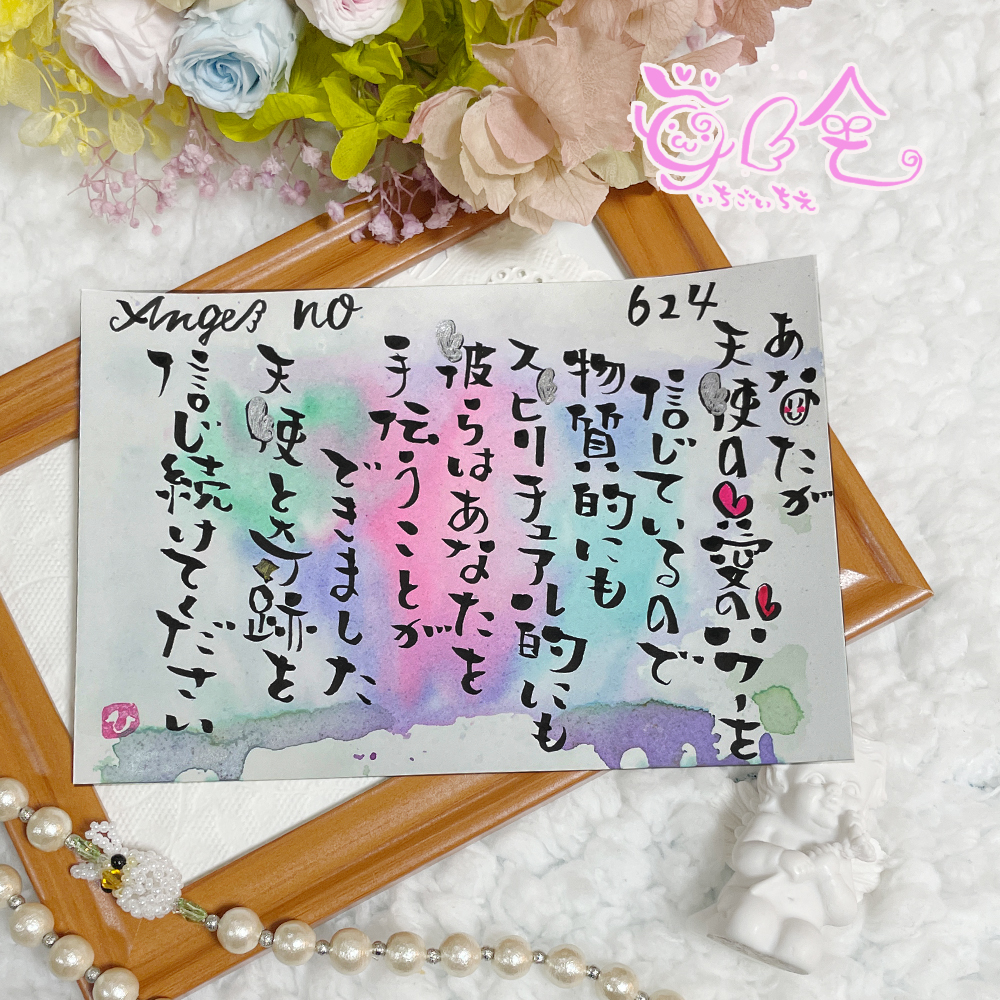 Angel no 624
あなたが
天使の愛のパワーを
信じているので
物質的にも
スピリチュアル的にも
彼らはあなたを
手伝うことが
できました
天使と奇跡を
信じ続けてください
いちごいちえ